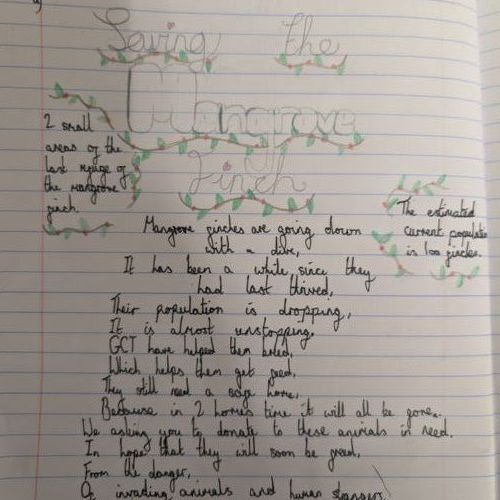 Saving the
Mangrove
Finch
2 small
areas of the
last refuge of
the mangrove
finch
The estimated
current population
is 100 finches.
Mangrove finches are going down
with a dive,
It has been a while since they
had last thrived,
Their population is dropping,
It is almost unstopping,
GCT have helped them breed,
Which helps them get freed,
They still need a safe home,
Because in 2 homes time it will all be gone.
We asking you to donate to these animals in need.
In hope that they will soon be freed,
From the danger,
Of invading animals and human strangers.